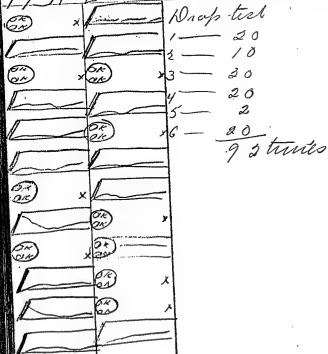 OK
OK x
OK
OK x
OK
OK x
OK
OK x
OK
OK x
OK
OK x
OK
OK x
OK
OK
OK
OK x
OK
OK x
Drop test
1 — 20
2 — 10
3 — 20
4 — 20
5 — 2
6 — 20
92 times